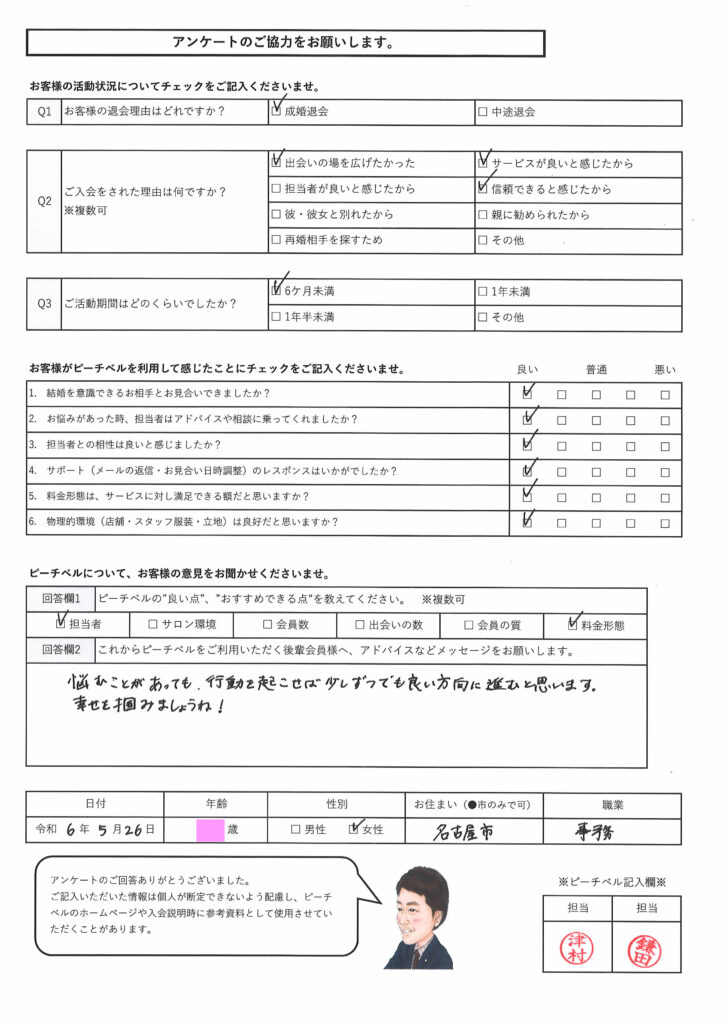 アンケートのご協力をお願いします。
お客様の活動状況についてチェックをご記入くださいませ。
Q1 お客様の退会理由はどれですか？ ☑成婚退会 □中途退会
Q2 ご入会をされた理由は何ですか？ ※複数可
☑出会いの場を広げたかった ☑サービスが良いと感じたから
□担当者が良いと感じたから ☑信頼できると感じたから
□彼・彼女と別れたから □親に勧められたから
□再婚相手を探すため □その他
Q3 ご活動期間はどのくらいでしたか？
☑6ケ月未満 □1年未満
□1年半未満 □その他
お客様がピーチベルを利用して感じたことにチェックをご記入くださいませ。 良い 普通 悪い
1. 結婚を意識できるお相手とお見合いできましたか？ ☑ □ □ □ □
2. お悩みがあった時、担当者はアドバイスや相談に乗ってくれましたか？ ☑ □ □ □ □
3. 担当者との相性は良いと感じましたか？ ☑ □ □ □ □
4. サポート（メールの返信・お見合い日時調整）のレスポンスはいかがでしたか？ ☑ □ □ □ □
5. 料金形態は、サービスに対し満足できる額だと思いますか？ ☑ □ □ □ □
6. 物理的環境（店舗・スタッフ服装・立地）は良好だと思いますか？ ☑ □ □ □ □
ピーチベルについて、お客様の意見をお聞かせくださいませ。
回答欄1 ピーチベルの"良い点"、"おすすめできる点"を教えてください。 ※複数可
☑担当者 □サロン環境 □会員数 □出会いの数 □会員の質 ☑料金形態
回答欄2 これからピーチベルをご利用いただく後輩会員様へ、アドバイスなどメッセージをお願いします。
悩むことがあっても、行動を起こせば少しずつでも良い方向に進むと思います。
幸せを掴みましょうね！
日付 年齢 性別 お住まい（●市のみで可） 職業
令和 6年 5月26日 歳 □男性 ☑女性 名古屋市 事務
アンケートのご回答ありがとうございました。
ご記入いただいた情報は個人が断定できないよう配慮し、ピーチ
ベルのホームページや入会説明時に参考資料として使用させてい
ただくことがあります。
※ピーチベル記入欄※
担当 担当
津村 鎌田